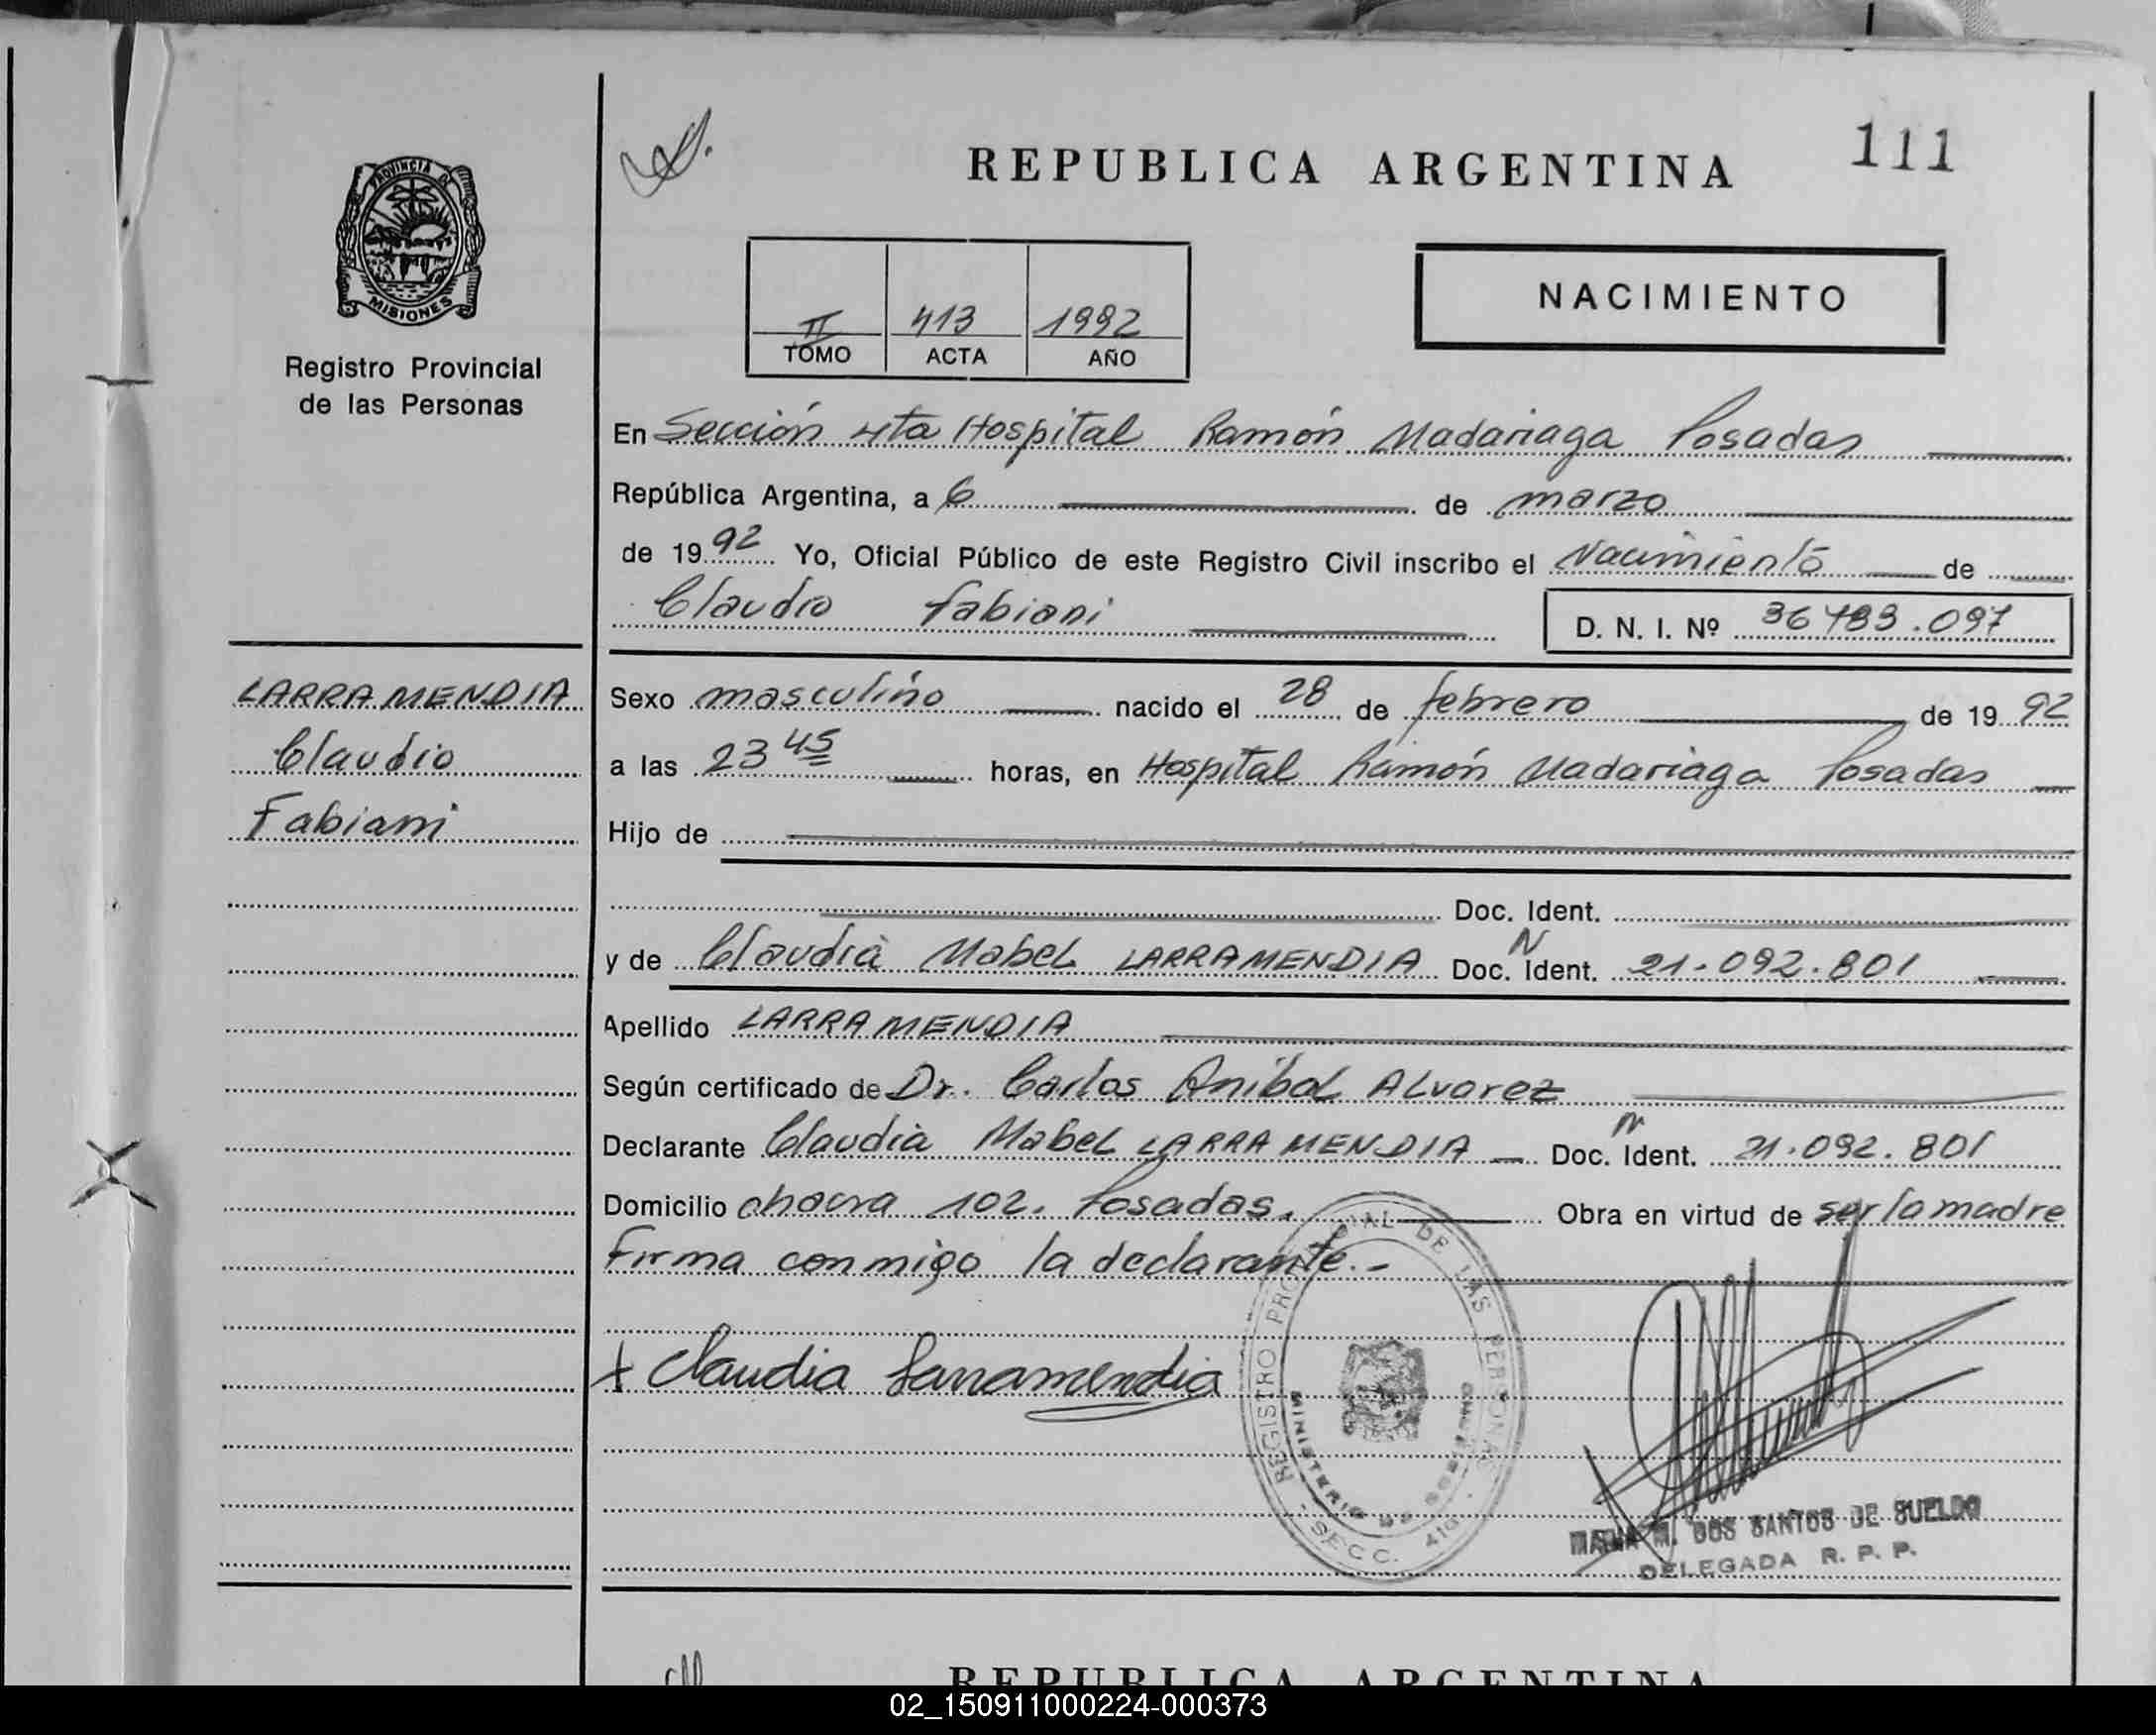 111
REPUBLICA ARGENTINA
PROVINCIA DE
MISIONES
Registro Provincial
de las Personas
II 413 1992
TOMO ACTA AÑO
NACIMIENTO
En Sección 4ta Hospital Ramón Madariaga Posadas
República Argentina, a 6 de marzo
de 1992 Yo, Oficial Público de este Registro Civil inscribo el Nacimiento de
Claudio Fabiani
D. N. I. Nº 36483.097
LARRAMENDIA
Claudio
Fabiani
Sexo masculino nacido el 28 de febrero de 1992
a las 23 45 horas, en Hospital Ramón Madariaga Posadas
Hijo de
Doc. Ident.
y de Claudia Mabel LARRAMENDIA Doc. N Ident. 21.092.801
Apellido LARRAMENDIA
Según certificado de Dr. Carlos Anibal Alvarez
Declarante Claudia Mabel LARRAMENDIA Doc. N Ident. 21.092.801
Domicilio chacra 102. Posadas. Obra en virtud de ser la madre
Firma conmigo la declarante.-
x Claudia Larramendia
REGISTRO PROVINCIAL DE LAS PERSONAS
MINISTERIO DE GOBIERNO
SECC. 4ta
MARIA M. DOS SANTOS DE SUELDO
DELEGADA R. P. P.
REPUBLICA ARGENTINA
02_150911000224-000373